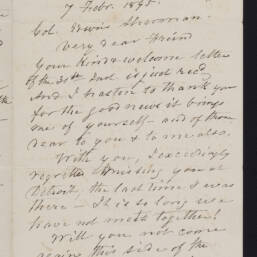 7 Febr. 1895.
Col.
Very dear Friend
Your kind & welcome letter
of the 30th is just recd
And I hasten to thank you
for the good news it brings
me of yourself and of those
dear to you & to me also.
With you, I exceedingly
regretted missing you at
Detroit, the last time I was
there — It is so long we
have not met together!
Will you not come
again this side of the